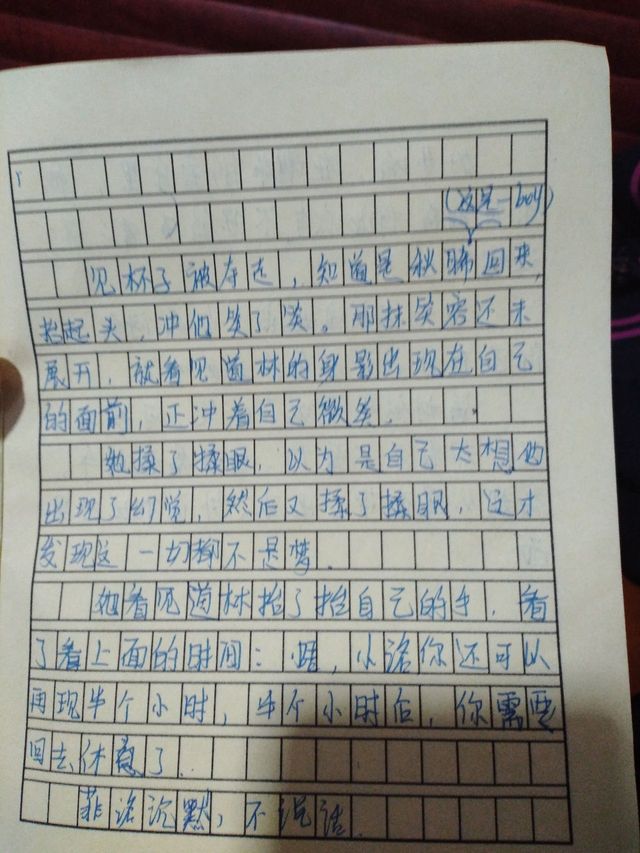 (这是一boy)
见杯子被夺走，知道是秋晞回来，
抬起头，冲他笑了笑。那抹笑容还未
展开，就看见道林的身影出现在自己
的面前，正冲着自己微笑．
她揉了揉眼，以为是自己太想他
出现了幻觉，然后又揉了揉眼，这才
发现这一切都不是梦．
她看见道林抬了抬自己的手，看
了看上面的时间：嗯，小洛你还可以
再现半个小时，半个小时后，你需要
回去休息了．
菲洛沉默，不说话．